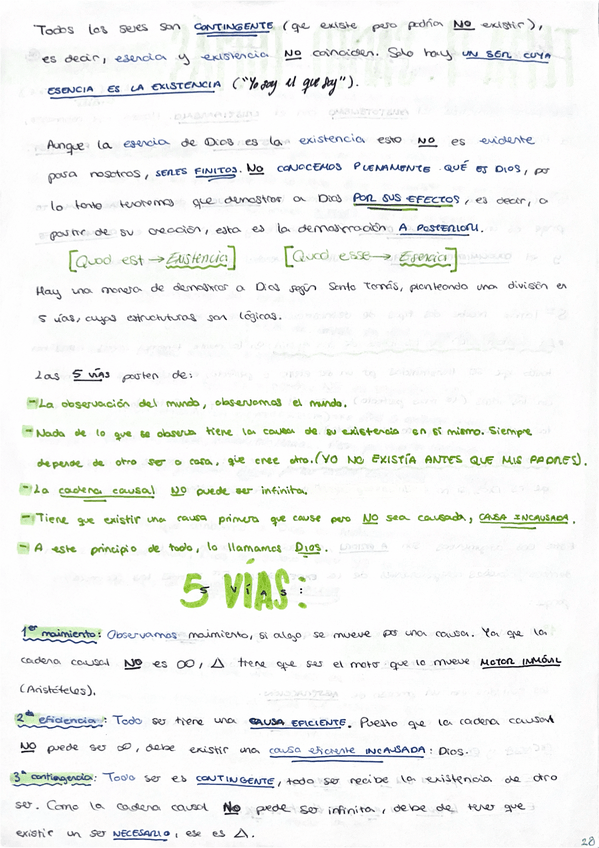 Todos los seres son CONTINGENTE (que existe pero podría NO existir),
es decir, esencia y existencia NO coinciden. Solo hay UN SER CUYA
ESENCIA ES LA EXISTENCIA ("Yo soy el que soy").
Aunque la esencia de Dios es la existencia esto NO es evidente
para nosotros, SERES FINITOS. NO CONOCEMOS PLENAMENTE QUÉ ES DIOS, por
lo tanto tenemos que demostrar a Dios POR SUS EFECTOS, es decir, a
partir de su creación, esta es la demostración A POSTERIORI.
[Quod est → Existencia] [Quod esse → Esencia]
Hay una manera de demostrar a Dios según Santo Tomás, planteando una división en
5 vías, cuyas estructuturas son lógicas.
Las 5 VÍAS parten de:
- La observación del mundo, observamos el mundo.
- Nada de lo que se observa tiene la causa de su existencia en si mismo. Siempre
depende de otro ser o cosa, que cree otro. (YO NO EXISTÍA ANTES QUE MIS PADRES).
- La cadena causal NO puede ser infinita.
- Tiene que existir una causa primera que cause pero NO sea causada, CAUSA INCAUSADA.
- A este principio de todo, lo llamamos Dios.
5 VÍAS:
1er movimiento: Observamos movimiento, si algo se mueve por una causa. Ya que la
cadena causal NO es ∞, Δ tiene que ser el motor que lo mueve MOTOR INMÓVIL
(Aristóteles).
2da eficiencia: Todo ser tiene una CAUSA EFICIENTE. Puesto que la cadena causal
NO puede ser ∞, debe existir una causa eficiente INCAUSADA: Dios.
3a contingencia: Todo ser es CONTINGENTE, todo ser recibe la existencia de otro
ser. Como la cadena causal NO puede ser infinita, debe de tener que
existir un ser NECESARIO, ese es Δ.
28